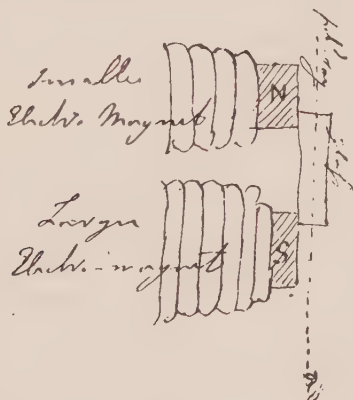 Smaller
Electro Magnet
N
Larger
Electro-magnet
S